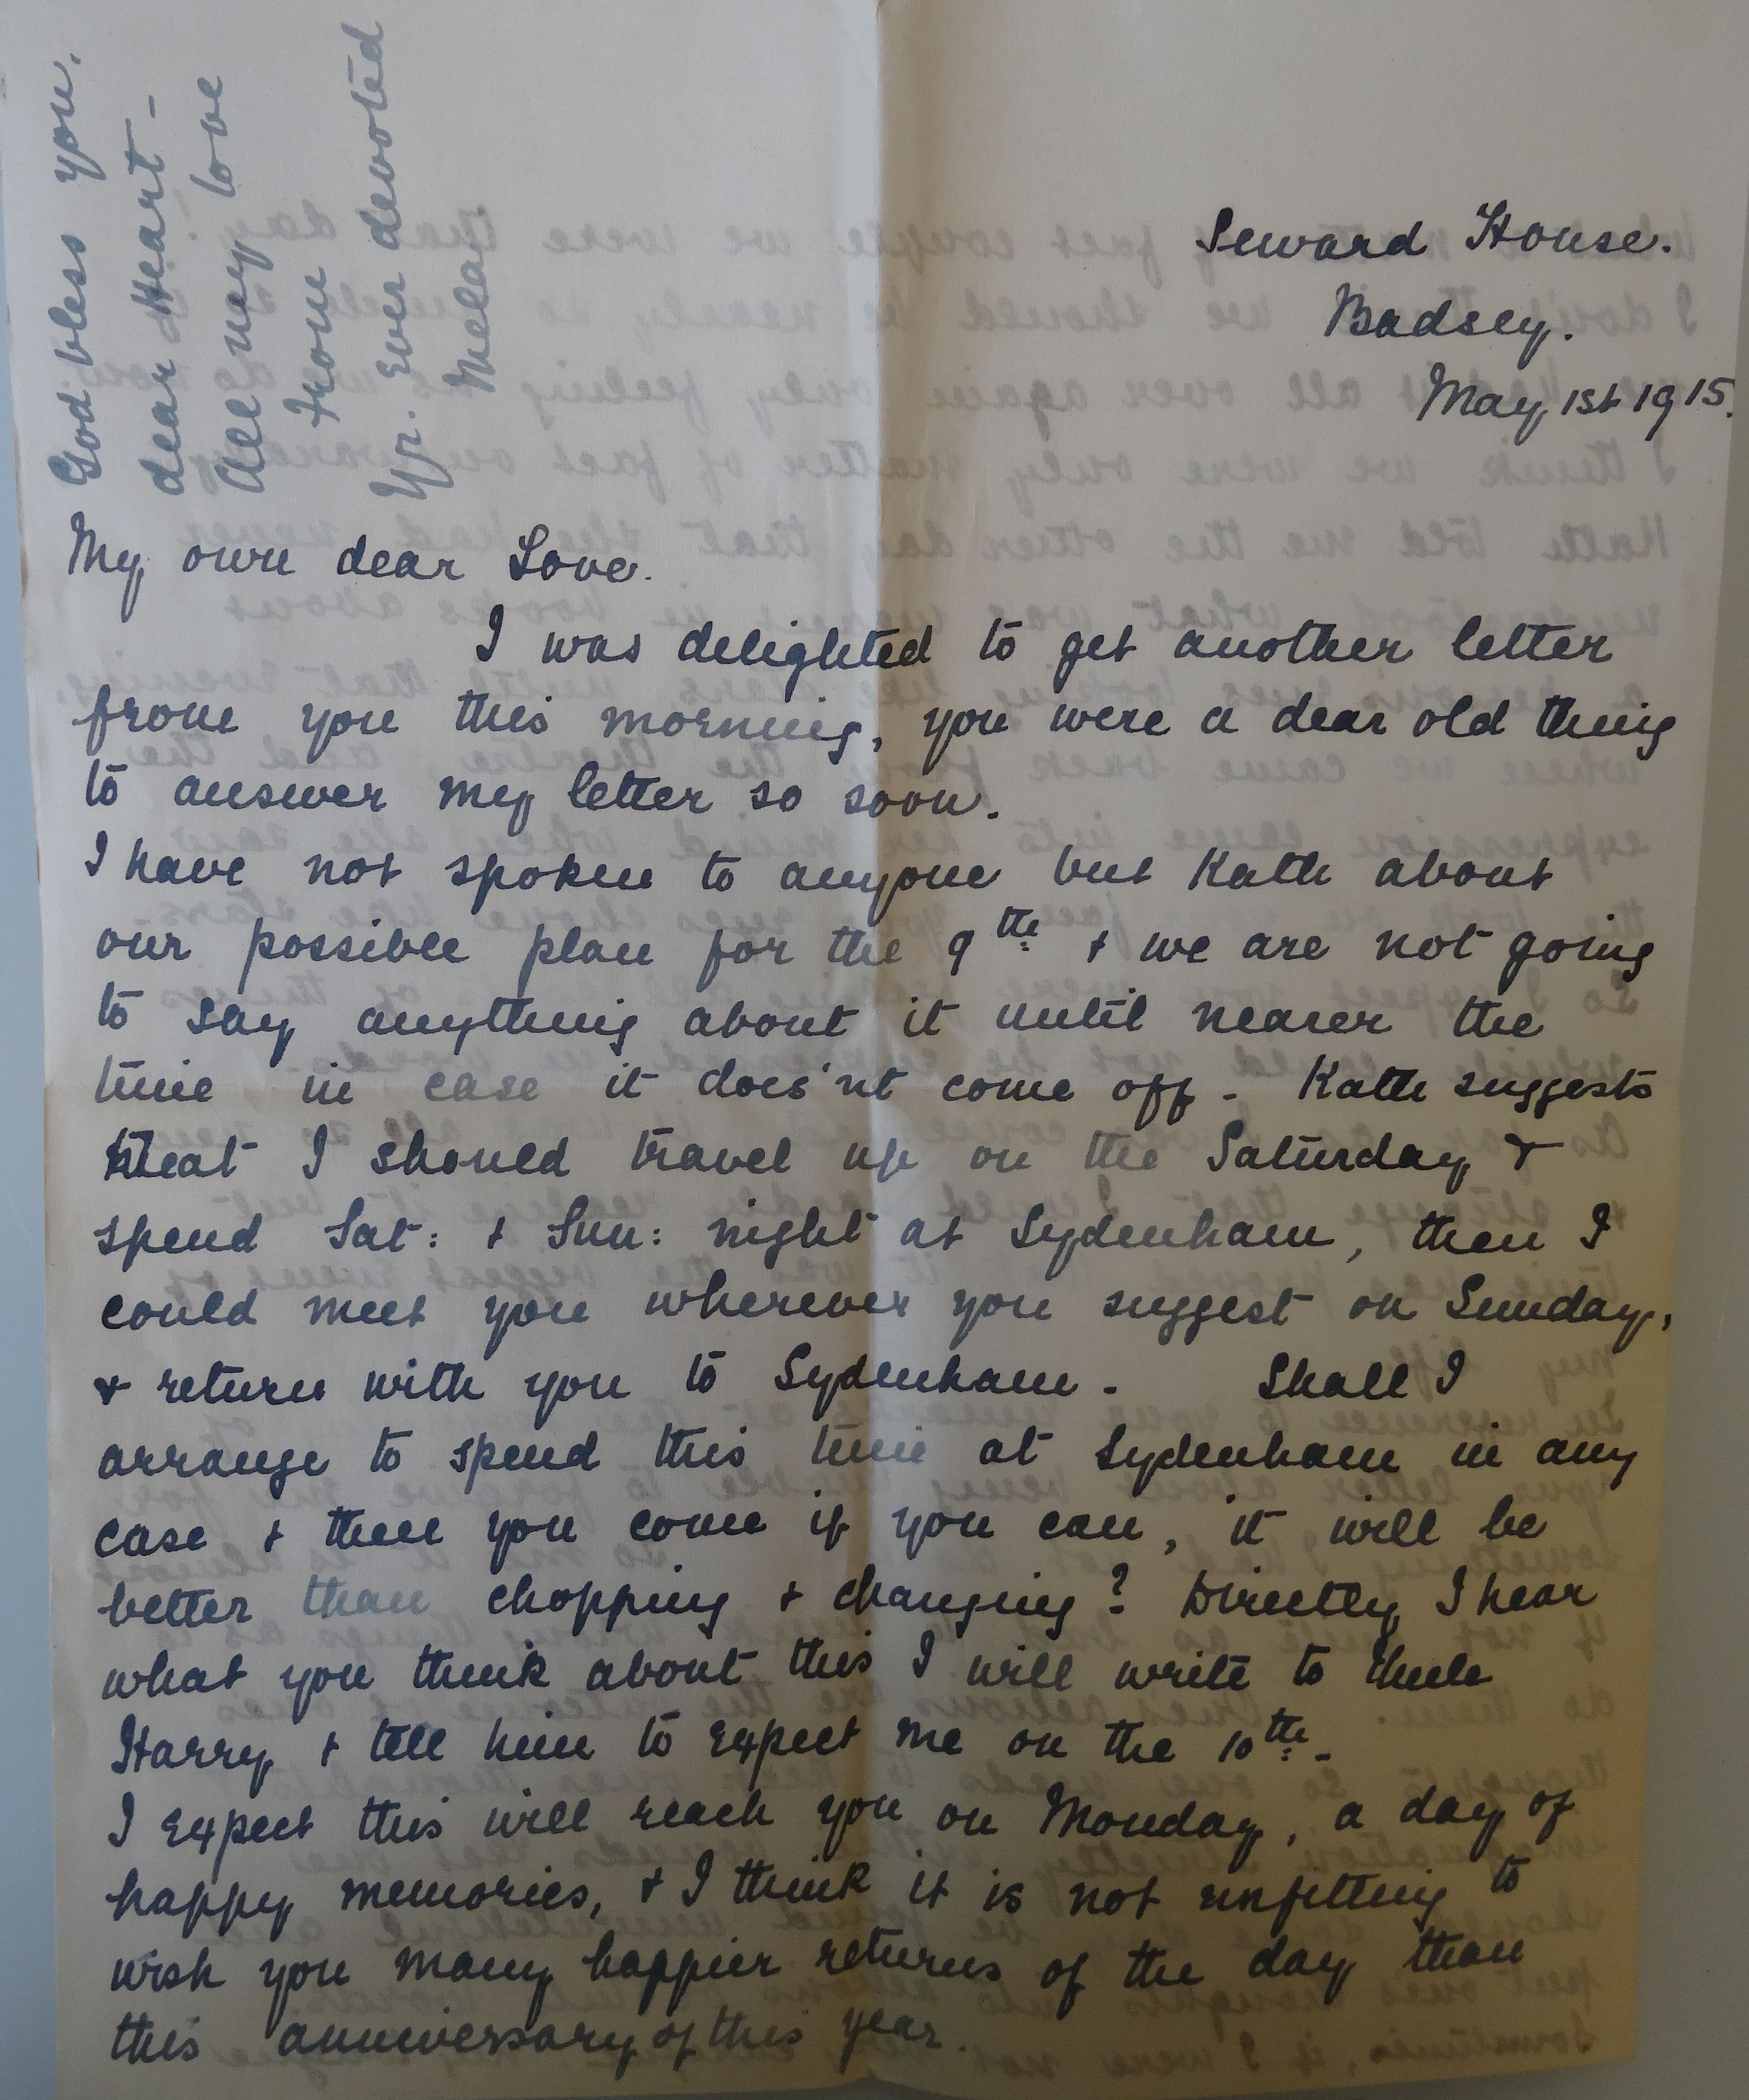 Seward House.
Badsey.
May 1st 1915.
My own dear Love.
I was delighted to get another letter
from you this morning, you were a dear old thing
to answer my letter so soon.
I have not spoken to anyone but Kath about
our possible plan for the 9th & we are not going
to say anything about it until nearer the
time in case it does'nt come off - Kath suggests
that I should travel up on the Saturday &
spend Sat: & Sun: night at Sydenham, then I
could meet you wherever you suggest on Sunday,
& return with you to Sydenham. Shall I
arrange to spend this time at Sydenham in any
case & then you come if you can, it will be
better than chopping & changing? Directly I hear
what you think about this I will write to Uncle
Harry & tell him to expect me on the 10th -
I expect this will reach you on Monday, a day of
happy memories, & I think it is not unfitting to
wish you many happier returns of the day than
this anniversary of this year.
God bless you.
dear Heart -
All my love
From
Yr. Ever devoted
Mela.